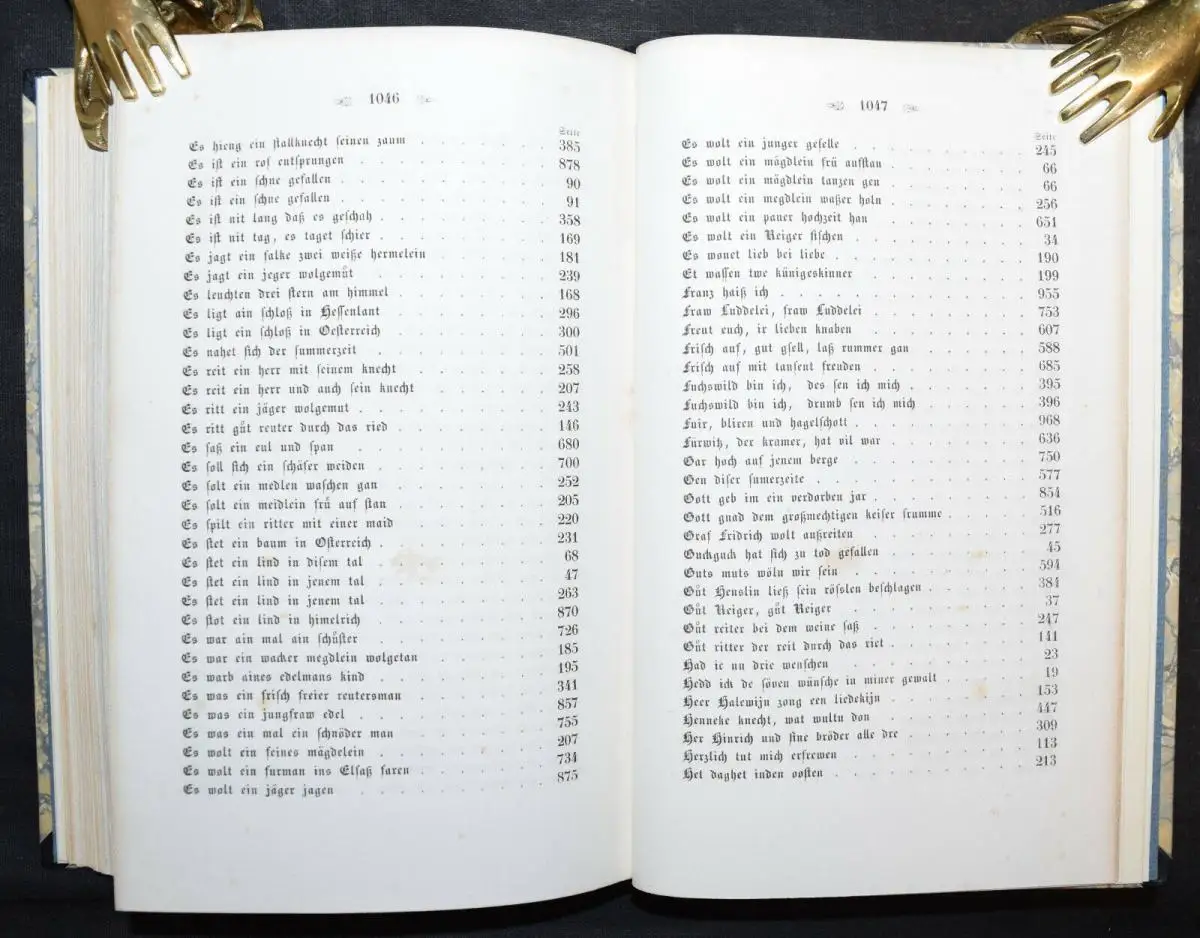 1046
Seite
Es hieng ein stallknecht seinen zaum 385
Es ist ein ros entsprungen 878
Es ist ein schne gefallen 90
Es ist ein schne gefallen 91
Es ist nit lang daß es geschah 358
Es ist nit tag, es taget schier 169
Es jagt ein falke zwei weiße hermelein 181
Es jagt ein jeger wolgemůt 239
Es leuchten drei stern am himmel 168
Es ligt ain schloß in Hessenlant 296
Es ligt ein schloß in Oesterreich 300
Es nahet sich der summerzeit 501
Es reit ein herr mit seinem knecht 258
Es reit ein herr und auch sein knecht 207
Es ritt ein jäger wolgemut 243
Es ritt gůt reuter durch das ried 146
Es saß ein eul und span 680
Es soll sich ein schäfer weiden 700
Es solt ein medlen waschen gan 252
Es solt ein meidlein frů auf stan 205
Es spilt ein ritter mit einer maid 220
Es stet ein baum in Österreich 231
Es stet ein lind in disem tal 68
Es stet ein lind in jenem tal 47
Es stet ein lind in jenem tal 263
Es stot ein lind in himelrich 870
Es war ain mal ain schůster 726
Es war ein wacker megdlein wolgetan 185
Es warb aines edelmans kind 195
Es was ein frisch freier reutersman 341
Es was ein jungfraw edel 857
Es was ein mal ein schnöder man 755
Es wolt ein feines mägdelein 207
Es wolt ein furman ins Elsaß faren 734
Es wolt ein jäger jagen 875
1047
Seite
Es wolt ein junger geselle 245
Es wolt ein mägdlein frü aufstan 66
Es wolt ein mägdlein tanzen gen 66
Es wolt ein megdlein waßer holn 256
Es wolt ein pauer hochzeit han 651
Es wolt ein Reiger fischen 34
Es wonet lieb bei liebe 190
Et wassen twe künigeskinner 199
Franz haiß ich 955
Fraw Luddelei, fraw Luddelei 753
Freut euch, ir lieben knaben 607
Frisch auf, gut gsell, laß rummer gan 588
Frisch auf mit tausent freuden 685
Fuchswild bin ich, des sen ich mich 395
Fuchswild bin ich, drumb sen ich mich 396
Fuir, blixen und hagelschott 968
Fürwitz, der kramer, hat vil war 636
Gar hoch auf jenem berge 750
Gen diser sumerzeite 577
Gott geb im ein verdorben jar 854
Gott gnad dem großmechtigen keiser frumme 516
Graf Fridrich wolt außreiten 277
Guckguck hat sich zu tod gefallen 45
Guts muts wöln wir sein 594
Gůt Henslin ließ sein rösslen beschlagen 384
Gůt Reiger, gůt Reiger 37
Gůt reiter bei dem weine saß 247
Gůt ritter der reit durch das riet 141
Had ic nu drie wenschen 23
Hedd ick de söven wünsche in miner gewalt 19
Heer Halewijn zong een liedekijn 153
Henneke knecht, wat wultu don 447
Her Hinrich und sine bröder alle dre 309
Herzlich tut mich erfrewen 113
Het daghet inden oosten 213